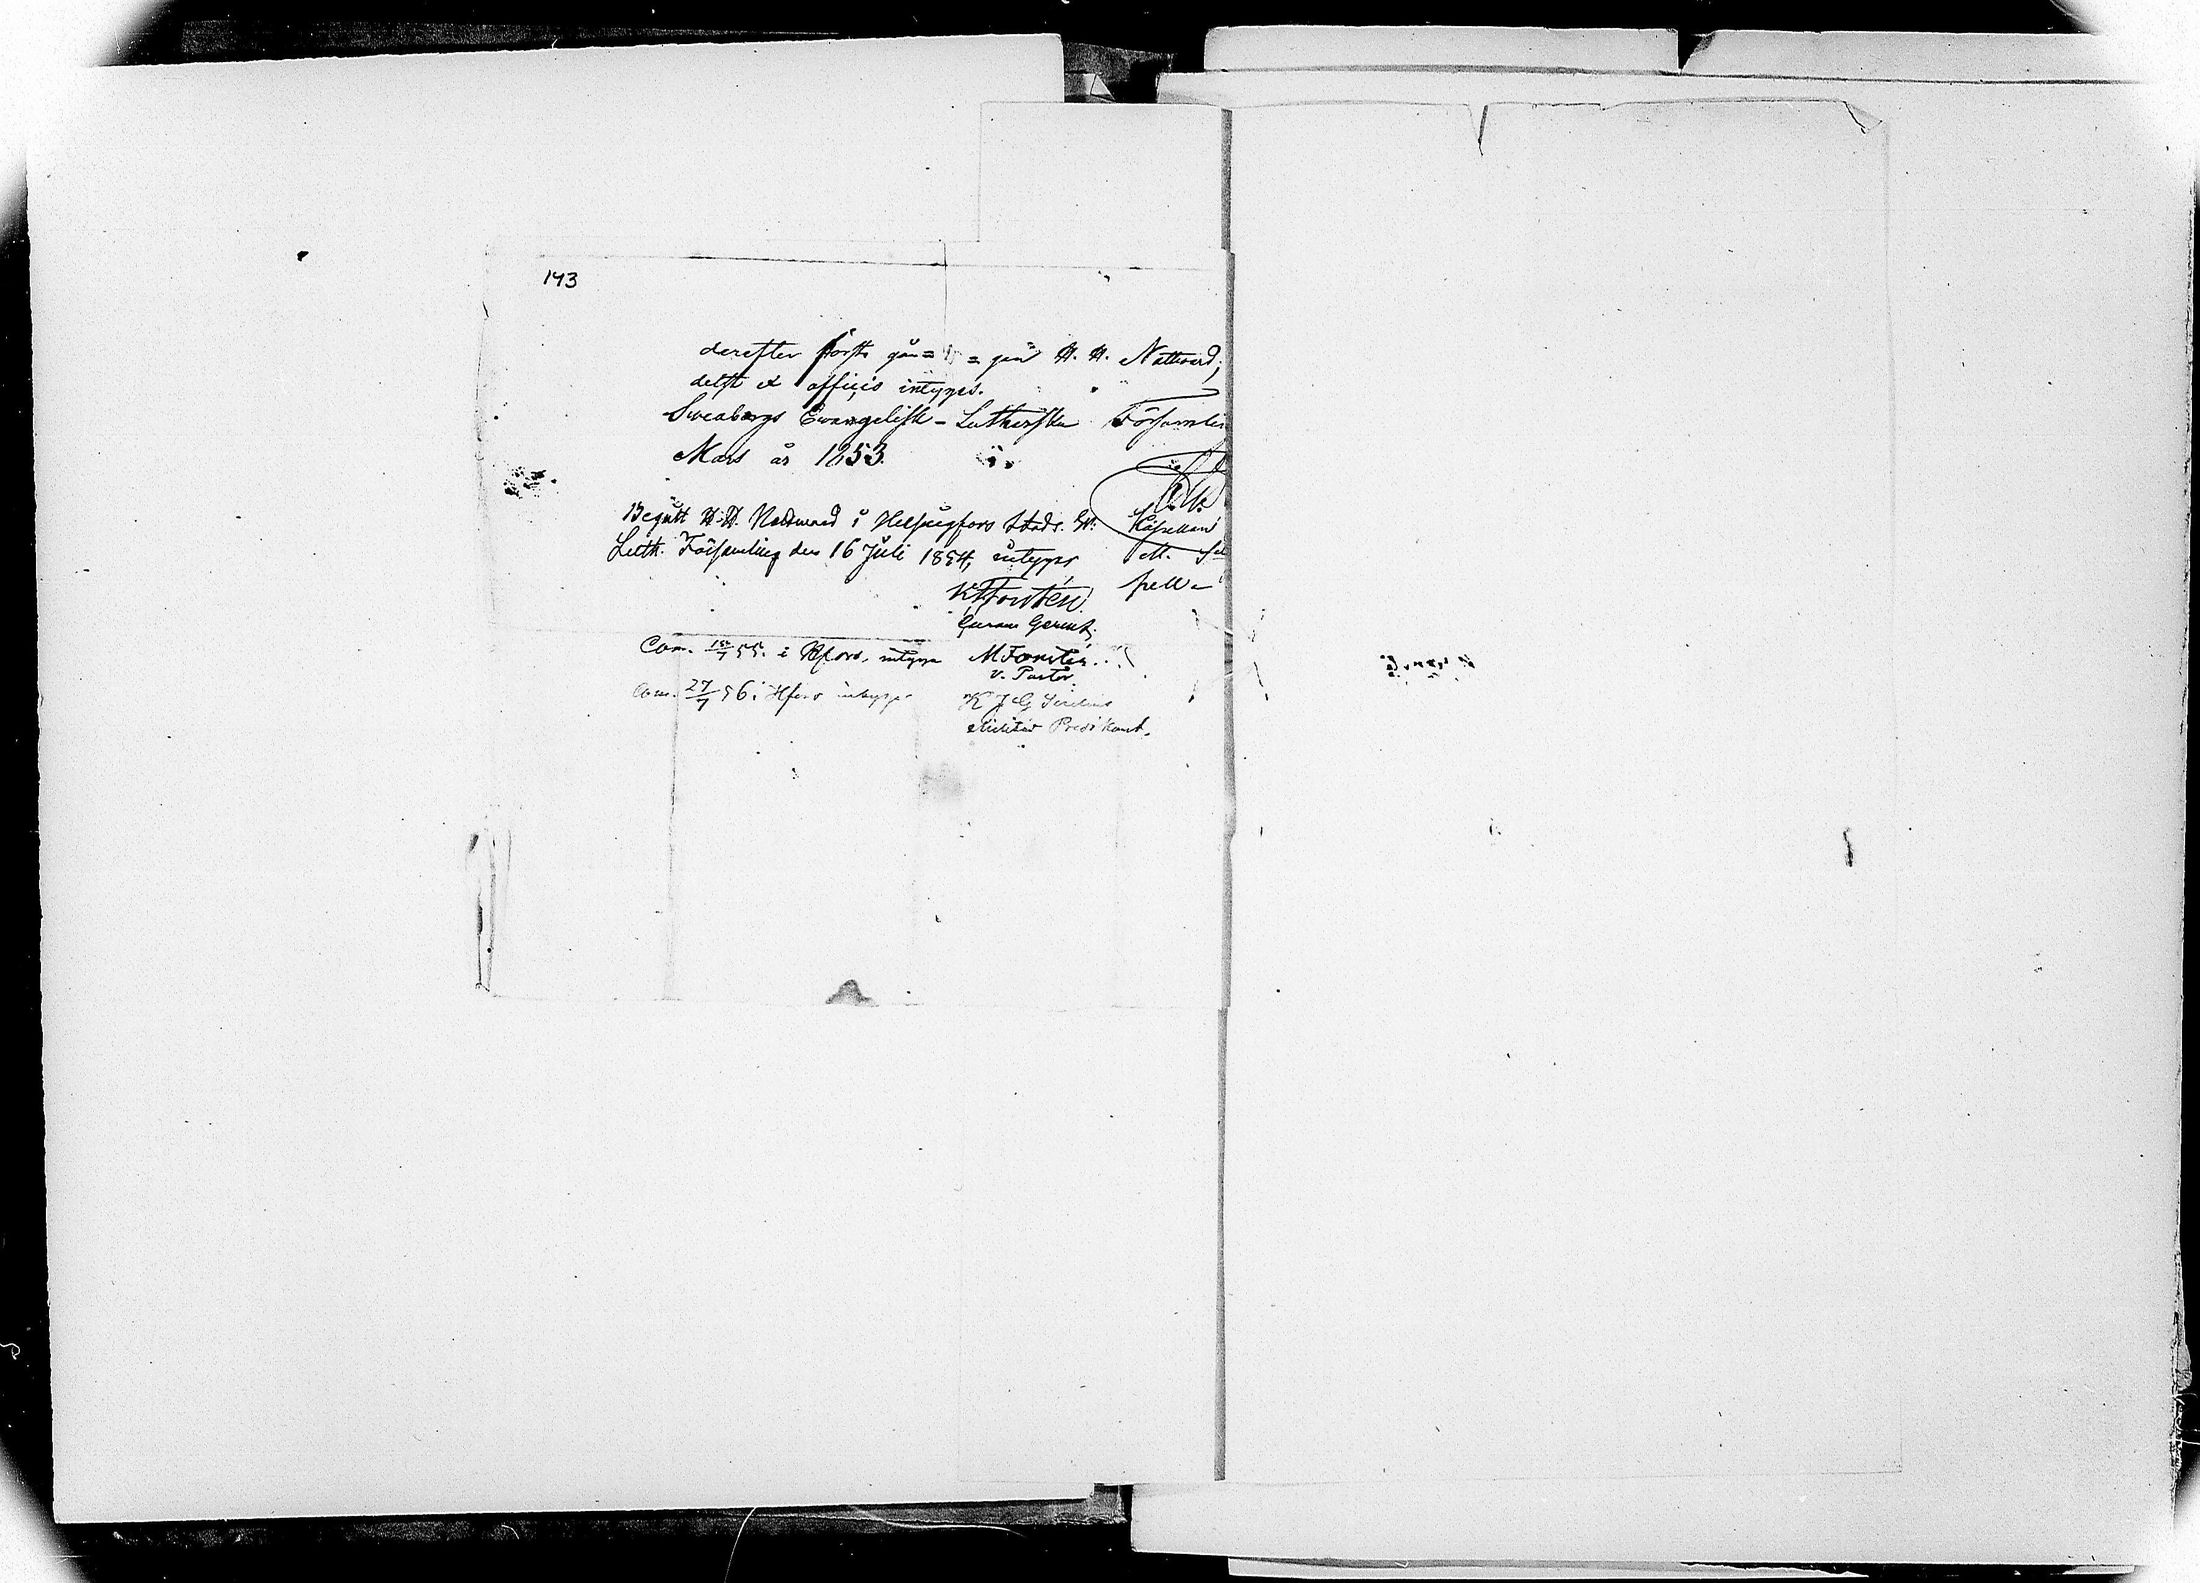 143
derefter förste gån= =gen H. H. Nattvard,
delst ex officio intygas.
Sweaborgs Evangelisk-Lutherska Församlin
Mars år 1853.
Begått H. H. Nattward i Helsingfors Stads Ev.
Luth. Församling den 16 Juli 1854, intygar
Forstén
Curam Gerent.
Com. 55. i Hfors, intygar M Forstén.
v. Pastor.
Com. 27/7 56 i Hfors intygar K J G
Militär Predikant.